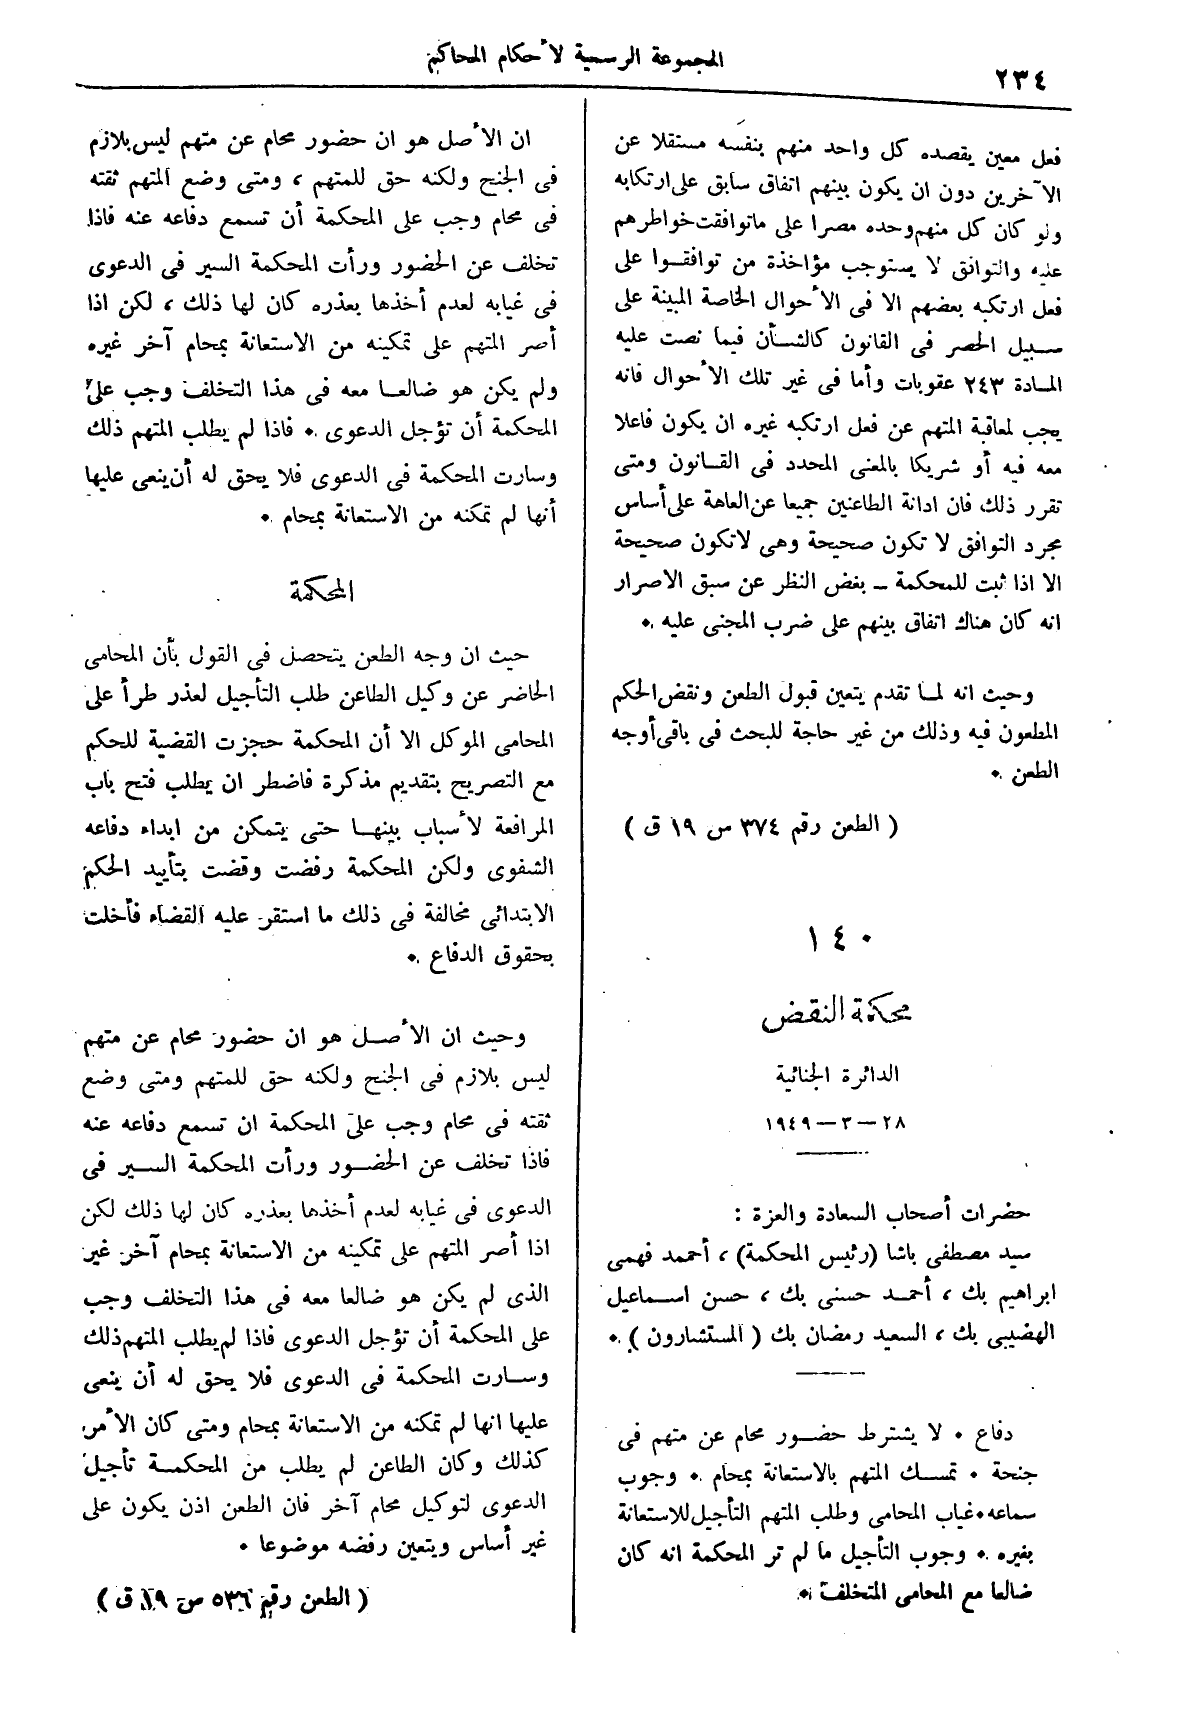 ٢٣٤
المجموعة الرسمية لأحكام المحاكم
فعل معين يقصده كل واحد منهم بنفسه مستقلا عن
الآخرين دون ان يكون بينهم اتفاق سابق على ارتكابه
ولو كان كل منهم وحده مصرا على ماتوافقت خواطرهم
عليه والتوافق لا يستوجب مؤاخذة من توافقوا على
فعل ارتكبه بعضهم الا فى الأحوال الخاصة المبينة على
سبيل الحصر فى القانون كالشأن فيما نصت عليه
المادة ٢٤٣ عقوبات وأما فى غير تلك الأحوال فانه
يجب لمعاقبة المتهم عن فعل ارتكبه غيره ان يكون فاعلا
معه فيه أو شريكا بالمعنى المحدد فى القانون ومتى
تقرر ذلك فان ادانة الطاعنين جميعا عن العاهة على أساس
مجرد التوافق لا تكون صحيحة وهى لاتكون صحيحة
الا اذا ثبت للمحكمة ــ بغض النظر عن سبق الاصرار
انه كان هناك اتفاق بينهم على ضرب المجنى عليه .
وحيث انه لما تقدم يتعين قبول الطعن ونقض الحكم
المطعون فيه وذلك من غير حاجة للبحث فى باقى أوجه
الطعن .
( الطعن رقم ٣٧٤ س ١٩ ق )
١٤٠
محكمة النقض
الدائرة الجنائية
٢٨ — ٣ — ١٩٤٩
حضرات أصحاب السعادة والعزة :
سيد مصطفى باشا (رئيس المحكمة) ، أحمد فهمى
ابراهيم بك ، أحمد حسنى بك ، حسن اسماعيل
الهضيبى بك ، السعيد رمضان بك ( المستشارون ) .
دفاع . لا يشترط حضور محام عن متهم فى
جنحة . تمسك المتهم بالاستعانة بمحام . وجوب
سماعه . غياب المحامى وطلب المتهم التأجيل للاستعانة
بغيره . وجوب التأجيل ما لم تر المحكمة انه كان
ضالعا مع المحامى المتخلف .
ان الأصل هو ان حضور محام عن متهم ليس بلازم
فى الجنح ولكنه حق للمتهم ، ومتى وضع المتهم ثقته
فى محام وجب على المحكمة أن تسمع دفاعه عنه فاذا
تخلف عن الحضور ورأت المحكمة السير فى الدعوى
فى غيابه لعدم أخذها بعذره كان لها ذلك ، لكن اذا
أصر المتهم على تمكينه من الاستعانة بمحام آخر غيره
ولم يكن هو ضالعا معه فى هذا التخلف وجب على
المحكمة أن تؤجل الدعوى . فاذا لم يطلب المتهم ذلك
وسارت المحكمة فى الدعوى فلا يحق له أن ينعى عليها
أنها لم تمكنه من الاستعانة بمحام .
المحكمة
حيث ان وجه الطعن يتحصل فى القول بأن المحامى
الحاضر عن وكيل الطاعن طلب التأجيل لعذر طرأ على
المحامى الموكل الا أن المحكمة حجزت القضية للحكم
مع التصريح بتقديم مذكرة فاضطر ان يطلب فتح باب
المرافعة لأسباب بينها حتى يتمكن من ابداء دفاعه
الشفوى ولكن المحكمة رفضت وقضت بتأييد الحكم
الابتدائى مخالفة فى ذلك ما استقر عليه القضاء فأخلت
بحقوق الدفاع .
وحيث ان الأصل هو ان حضور محام عن متهم
ليس بلازم فى الجنح ولكنه حق للمتهم ومتى وضع
ثقته فى محام وجب على المحكمة ان تسمع دفاعه عنه
فاذا تخلف عن الحضور ورأت المحكمة السير فى
الدعوى فى غيابه لعدم أخذها بعذره كان لها ذلك لكن
اذا أصر المتهم على تمكينه من الاستعانة بمحام آخر غير
الذى لم يكن هو ضالعا معه فى هذا التخلف وجب
على المحكمة أن تؤجل الدعوى فاذا لم يطلب المتهم ذلك
وسارت المحكمة فى الدعوى فلا يحق له أن ينعى
عليها انها لم تمكنه من الاستعانة بمحام ومتى كان الأمر
كذلك وكان الطاعن لم يطلب من المحكمة تأجيل
الدعوى لتوكيل محام آخر فان الطعن اذن يكون على
غير أساس ويتعين رفضه موضوعا .
( الطعن رقم ٥٣٦ س ١٩ ق )